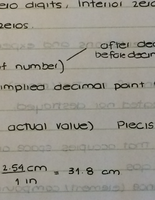 ero digits, Interior zero
zeros.
after dec
before decim
of number)
implied decimal point
actual value) Precis
2.54 cm
1 in
= 31.8 cm